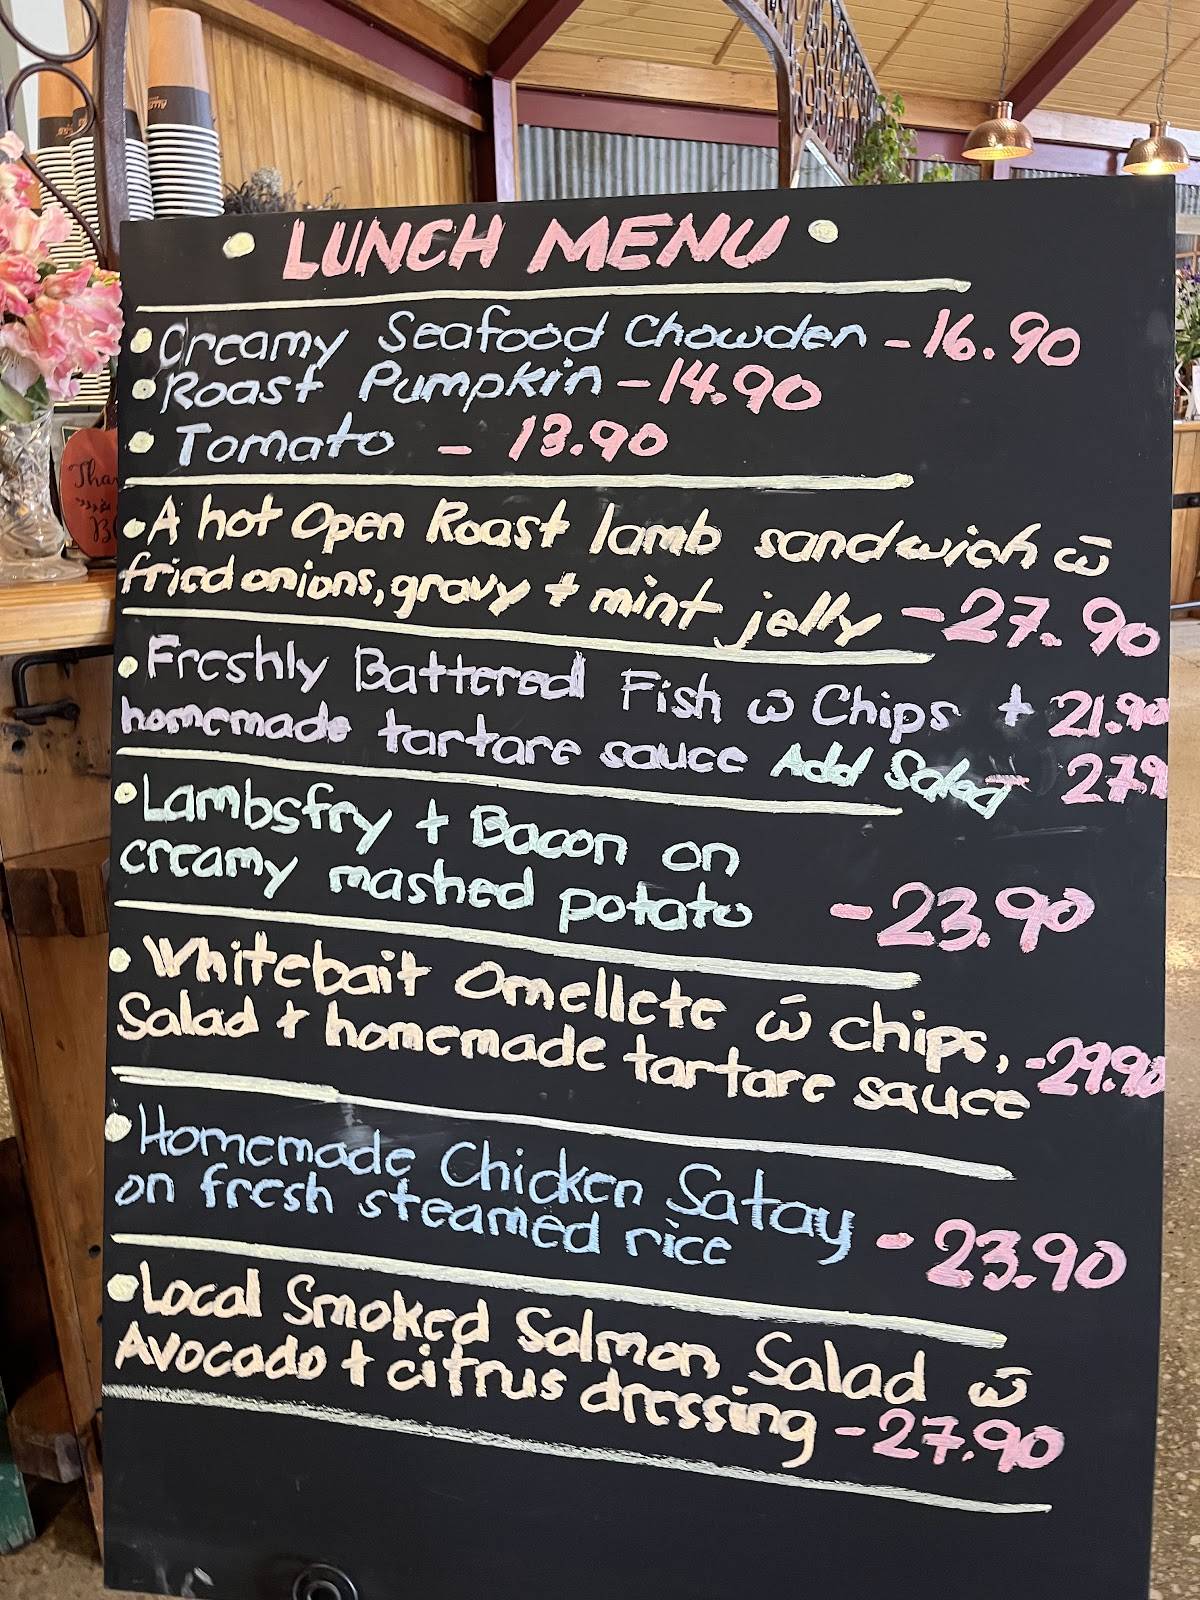 • LUNCH MENU •
• Creamy Seafood Chowder - 16.90
• Roast Pumpkin - 14.90
• Tomato - 13.90
• A hot Open Roast lamb sandwich w̄
fried onions, gravy + mint jelly - 27.90
• Freshly Battered Fish w̄ Chips + 21.90
homemade tartare sauce Add Salad 27.9
• Lambsfry + Bacon on
creamy mashed potato - 23.90
• Whitebait Omellete w̄ chips,
Salad + homemade tartare sauce - 29.90
• Homemade Chicken Satay
on fresh steamed rice - 23.90
• Local Smoked Salmon Salad w̄
Avocado + citrus dressing - 27.90